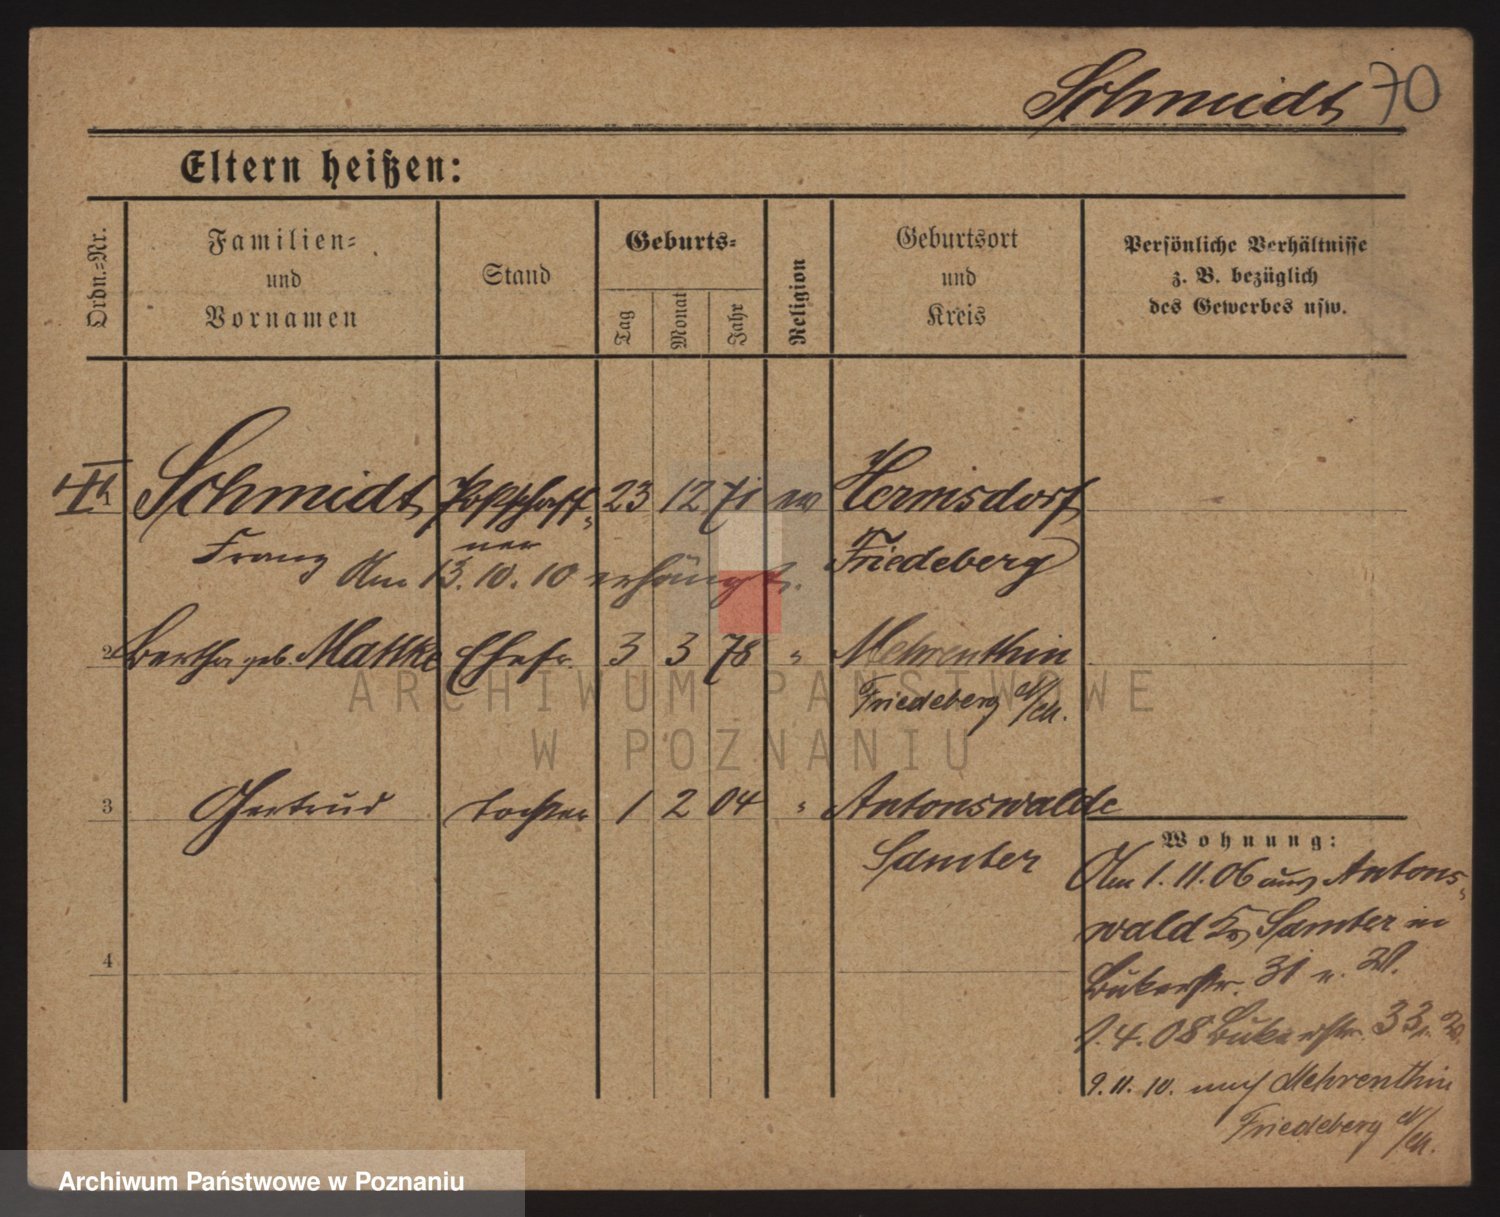 Schmidt 70
Eltern heißen:
Ordn.-Nr.
Familien-
und
Vornamen
Stand
Geburts-
Tag
Monat
Jahr
Religion
Geburtsort
und
Kreis
Persönliche Verhältnisse
z. B. bezüglich
des Gewerbes usw.
1 Schmidt Postschaff- 23 12 71 ev Hermsdorf
Franz ner Friedeberg
Am 13.10.10 erhängt.
2 Bertha geb. Mattke Ehefr. 3 3 78 " Mehrenthin
Friedeberg N/M.
3 Gertrud Tochter 1 2 04 " Antonswalde
Samter
4
Wohnung:
Am 1.11.06 aus Antons-
wald Kr Samter in
Bukerstr. 31 v. W.
1.4.08 Bukerstr. 33 v. W.
9.11.10. nach Mehrenthin
Friedeberg N/M.
ARCHIWUM PAŃSTWOWE
W POZNANIU
Archiwum Państwowe w Poznaniu